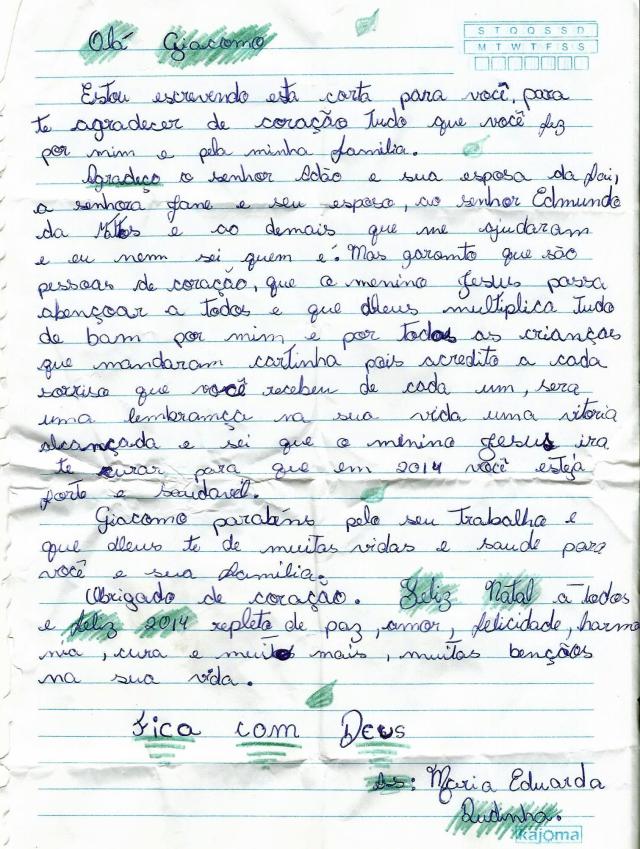 Olá Giacomo
S T Q Q S S D
M T W T F S S
Estou escrevendo esta carta para você, para
te agradecer de coração tudo que você fez
por mim e pela minha família.
Agradeço o senhor Adão e sua esposa da
a senhora Jane e seu esposo, ao senhor Edmundo
da e ao demais que me ajudaram
e eu nem sei quem é. Mas garamto que são
pessoas de coração, que o menino Jesus possa
abençoar a todos e que Deus multiplica tudo
de bam por mim e por todos as crianças
que mandaram cartinha pois acredito a cada
sorriso que você recebeu de cada um, sera
uma lembramça na sua vida uma vitoria
alcançada e sei que o menino Jesus ira
te curar para que em 2014 você esteja
forte e saudavél.
Giacomo parabéns pelo seu trabalho e
que Deus te de muitas vidas e saude para
você e sua família.
Obrigado de coração. Feliz Natal a todos
e feliz 2014 repleto de paz, amor, felicidade, harmo
nia, cura e muito mais, muitas bençãos
na sua vida.
Fica com Deus
: Maria Eduarda
Dudinha.
kajoma